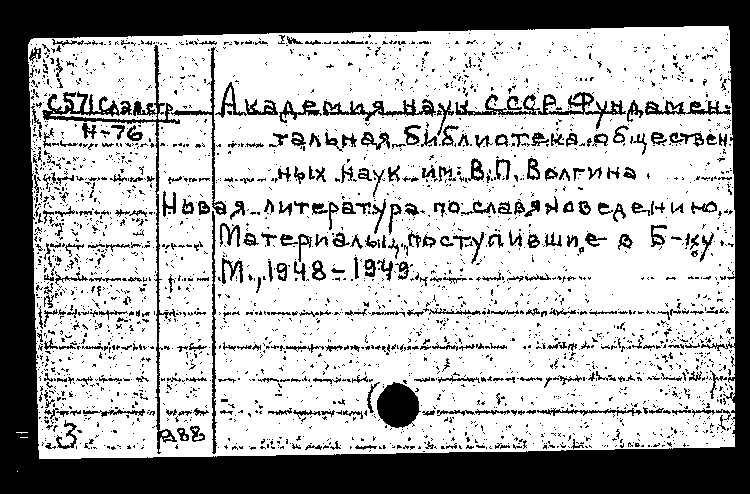 С571Слав.стр. Академия наук СССР. Фундамен-
Н-76 тальная библиотека обществен-
ных наук им. В.П. Волгина.
Новая литература по славяноведению.
Материалы, поступившие в Б-ку.
М., 1948-1949
3 988